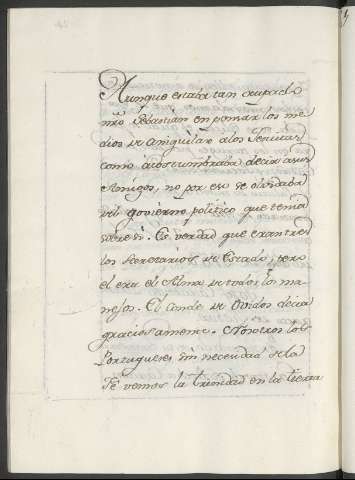 Aunque estaba tan ocupado
nrō Sebastian en pensar los me
dios de aniquilar a los Jesuitas
como acostumbraba decir a sus
Amigos, no por eso se olvidaba
del govierno politico que tenia
sobre si. Es verdad que eran tres
los Secretarios de Estado, pero
el era el Alma de todos los ma
nejos. El Conde de Ovidos decia
graciosamente. Nosotros los
Portugueses sin necesidad de la
Fe vemos la trinidad en la tierra